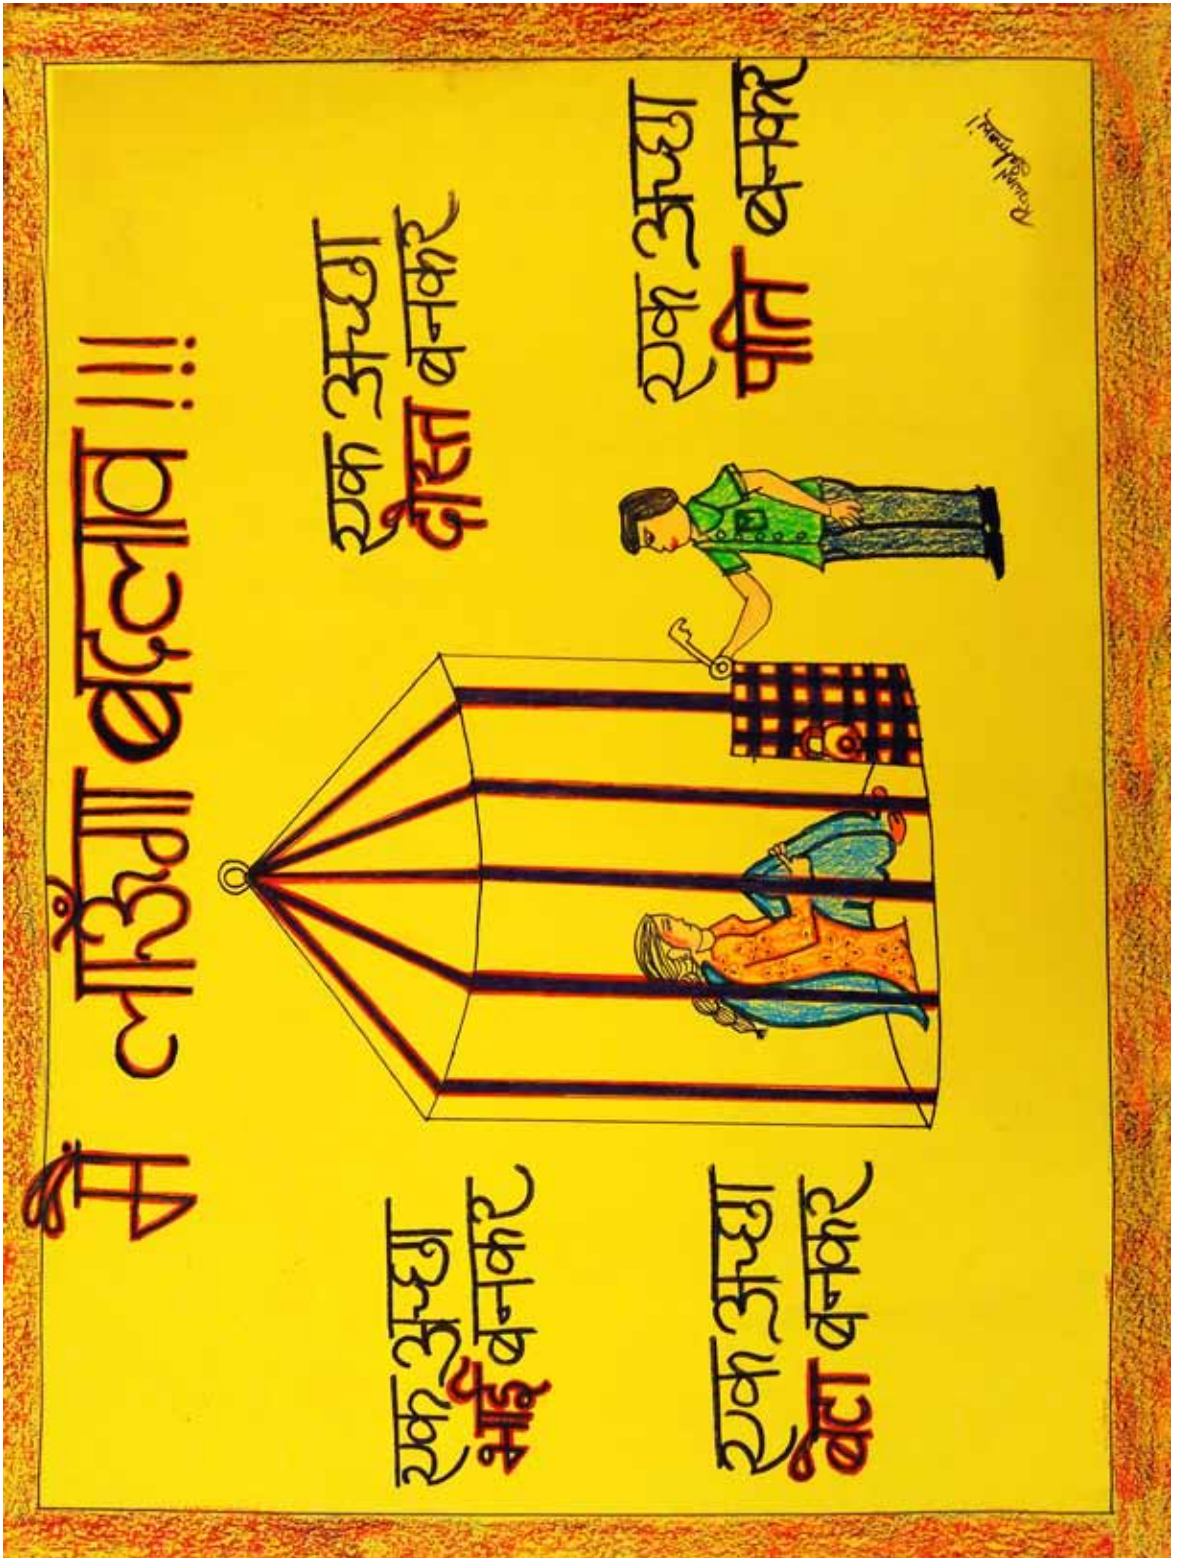 मैं लाऊँगा बदलाव !!!
एक अच्छा
भाई बनकर
एक अच्छा
दोस्त बनकर
एक अच्छा
बेटा बनकर
एक अच्छा
पति बनकर